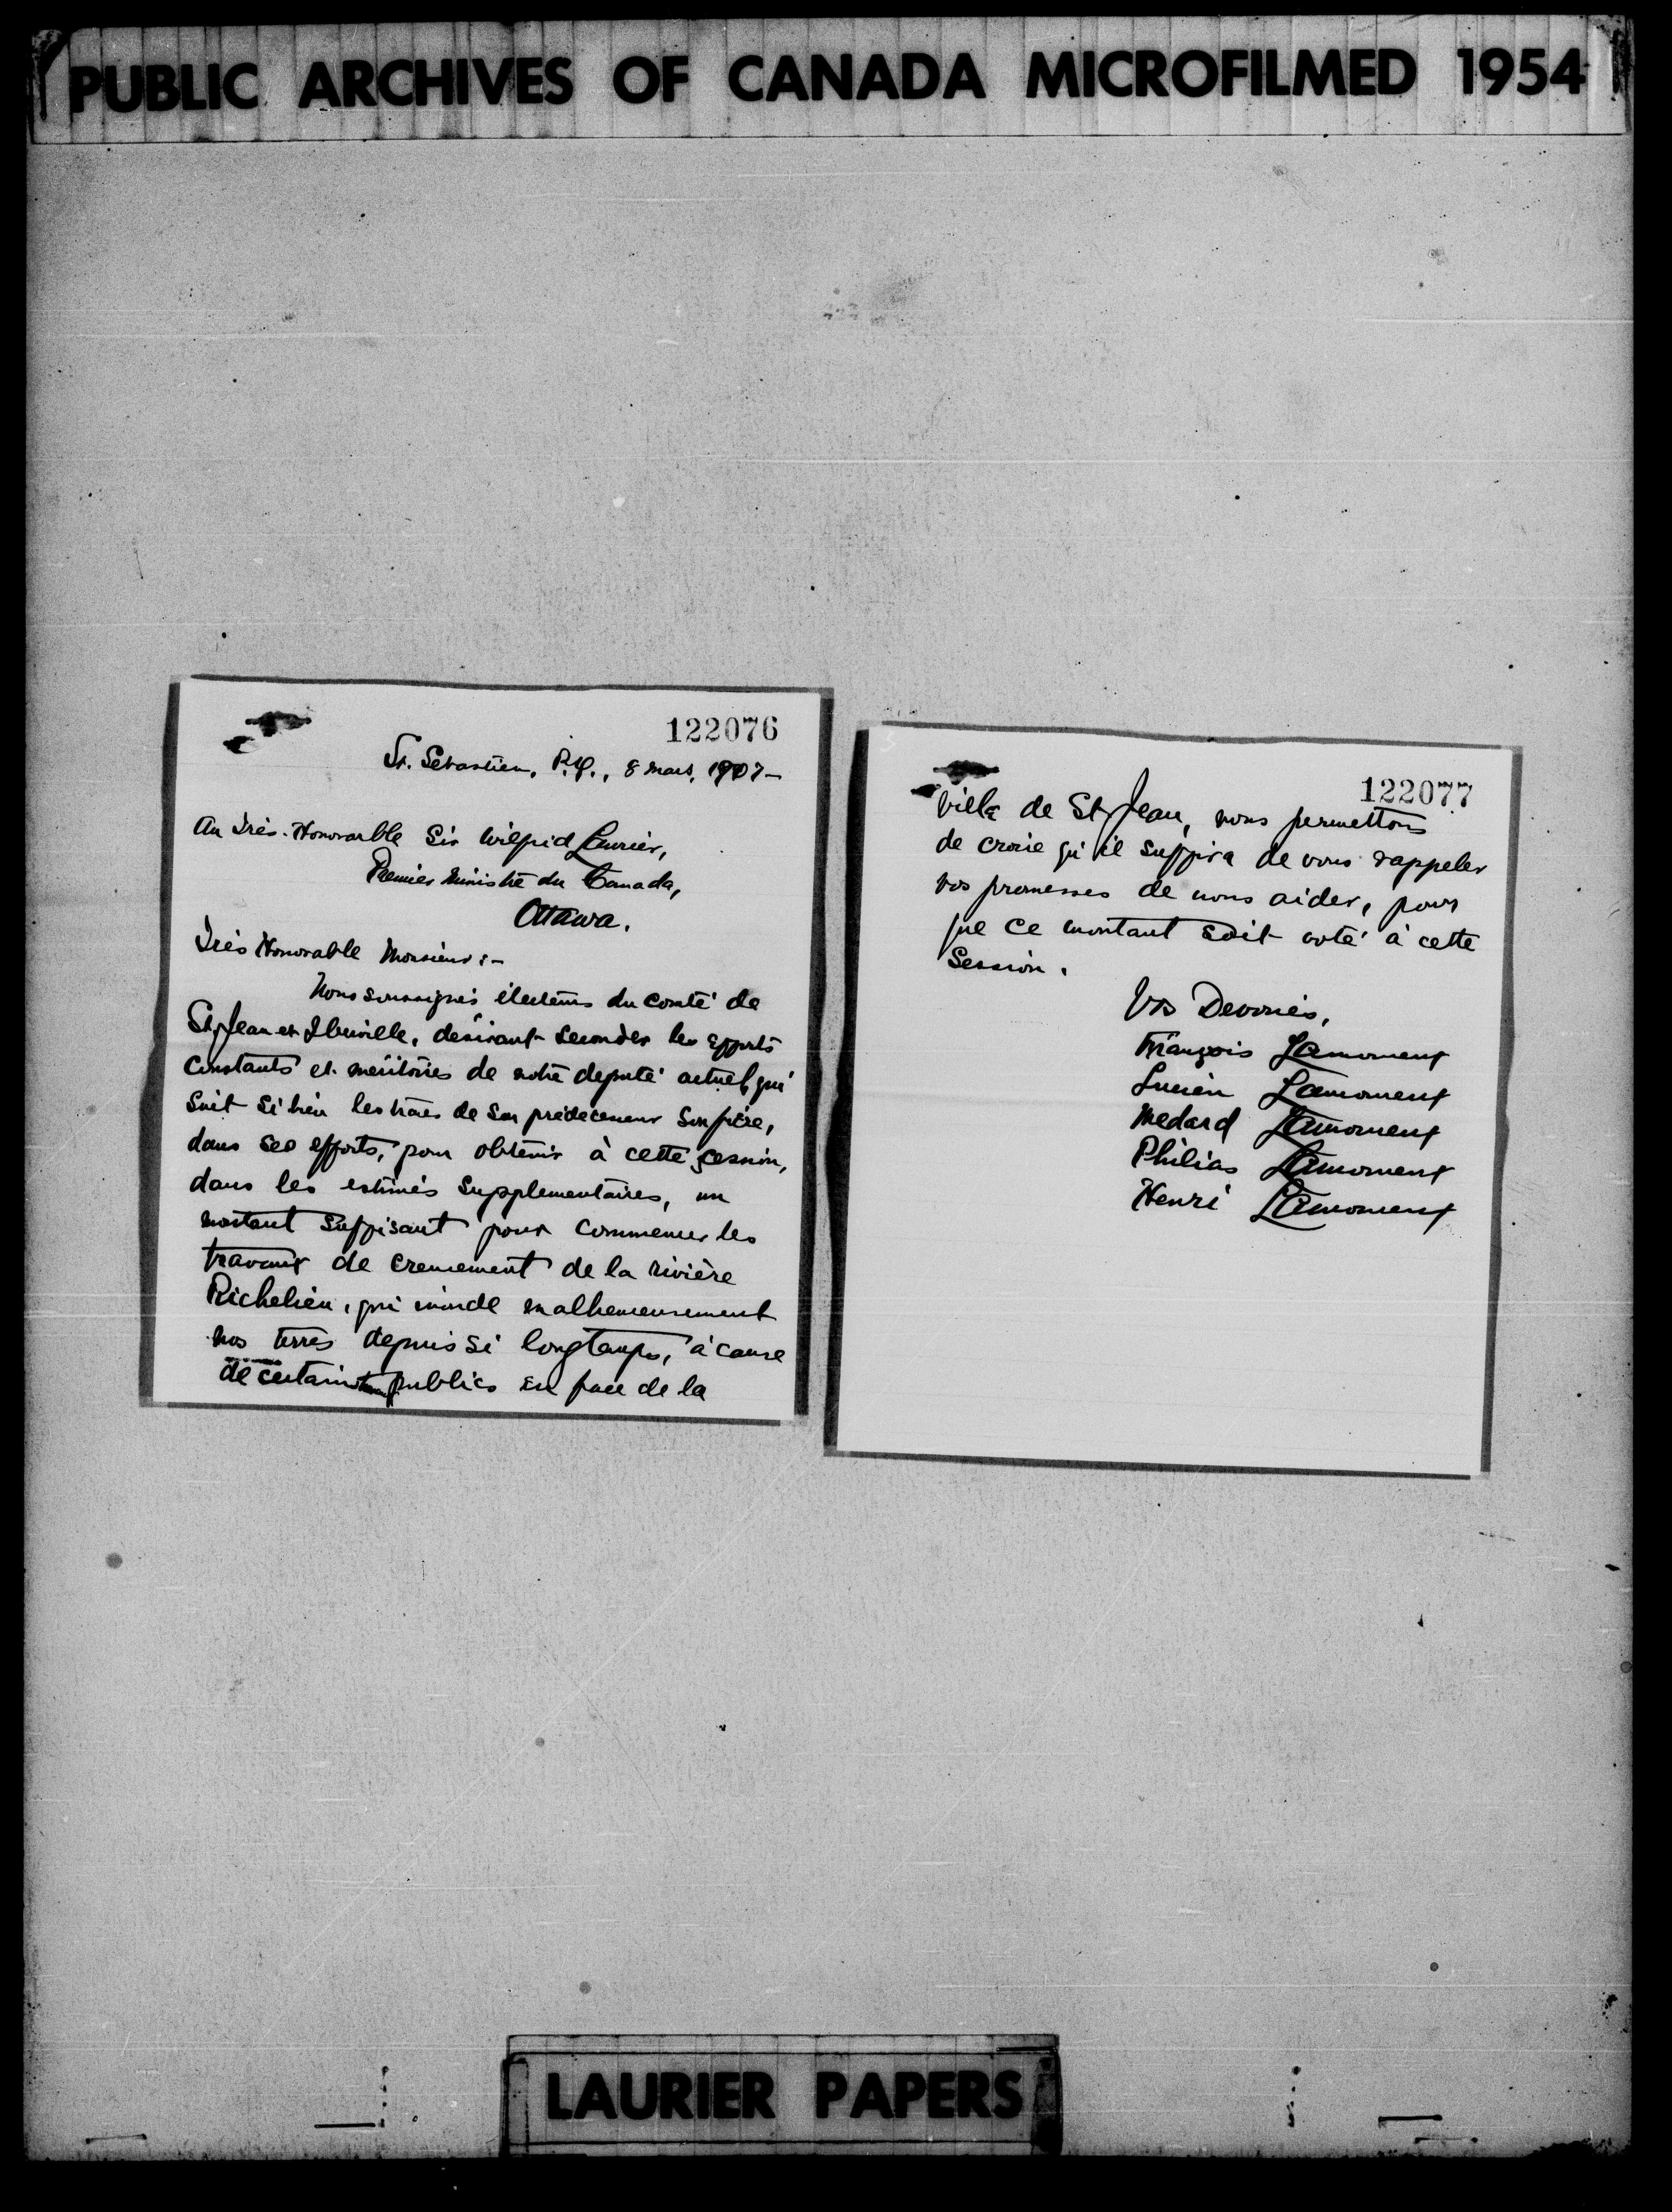 PUBLIC ARCHIVES OF CANADA MICROFILMED 1954
122076
St. Sébastien, P.Q., 8 mars, 1907-
Au Très-Honorable Sir Wilfrid Laurier,
Premier Ministre du Canada,
Ottawa.
Très Honorable Monsieur:-
Nous soussignés électeurs du comté de
St Jean et Iberville, désirant seconder les efforts
constants et méritoires de notre deputé actuel, qui
suit si bien les traces de son prédécesseur son père,
dans ses efforts, pour obtenir à cette session,
dans les estimés supplementaires, un
montant suffisant pour commencer les
travaux de creusement de la rivière
Richelieu, qui inonde malheureusement
nos terres depuis si longtemps, à cause
de certains travaux publics en face de la
122077
Ville de St Jean, nous permettons
de croire qu'il suffira de vous rappeler
vos promesses de nous aider, pour
que ce montant soit voté à cette
Session.
Vos Devoués,
François Lamoureux
Lucien Lamoureux
Medard Lamoureux
Philias Lamoureux
Henri Lamoureux
LAURIER PAPERS